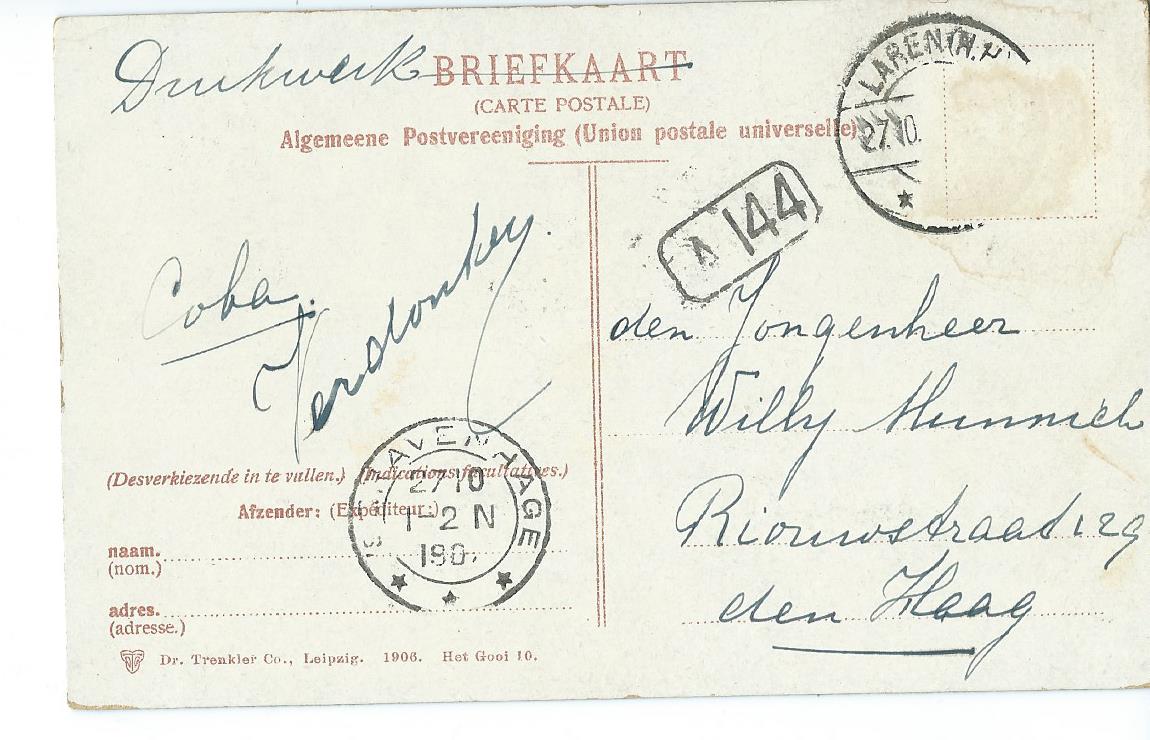 Drukwerk BRIEFKAART
(CARTE POSTALE)
Algemeene Postvereeniging (Union postale universelle)
LAREN (N.H.)
27.10.
A 144
Coba.
den Jongenheer
Willy
Riouwstraat 129
den Haag
(Desverkiezende in te vullen.) (Indications facultatives.)
Afzender: (Expéditeur:)
naam.
(nom.)
adres.
(adresse.)
'S GRAVENHAGE
27 10
1-2 N
190
Dr. Trenkler Co., Leipzig. 1906. Het Gooi 10.